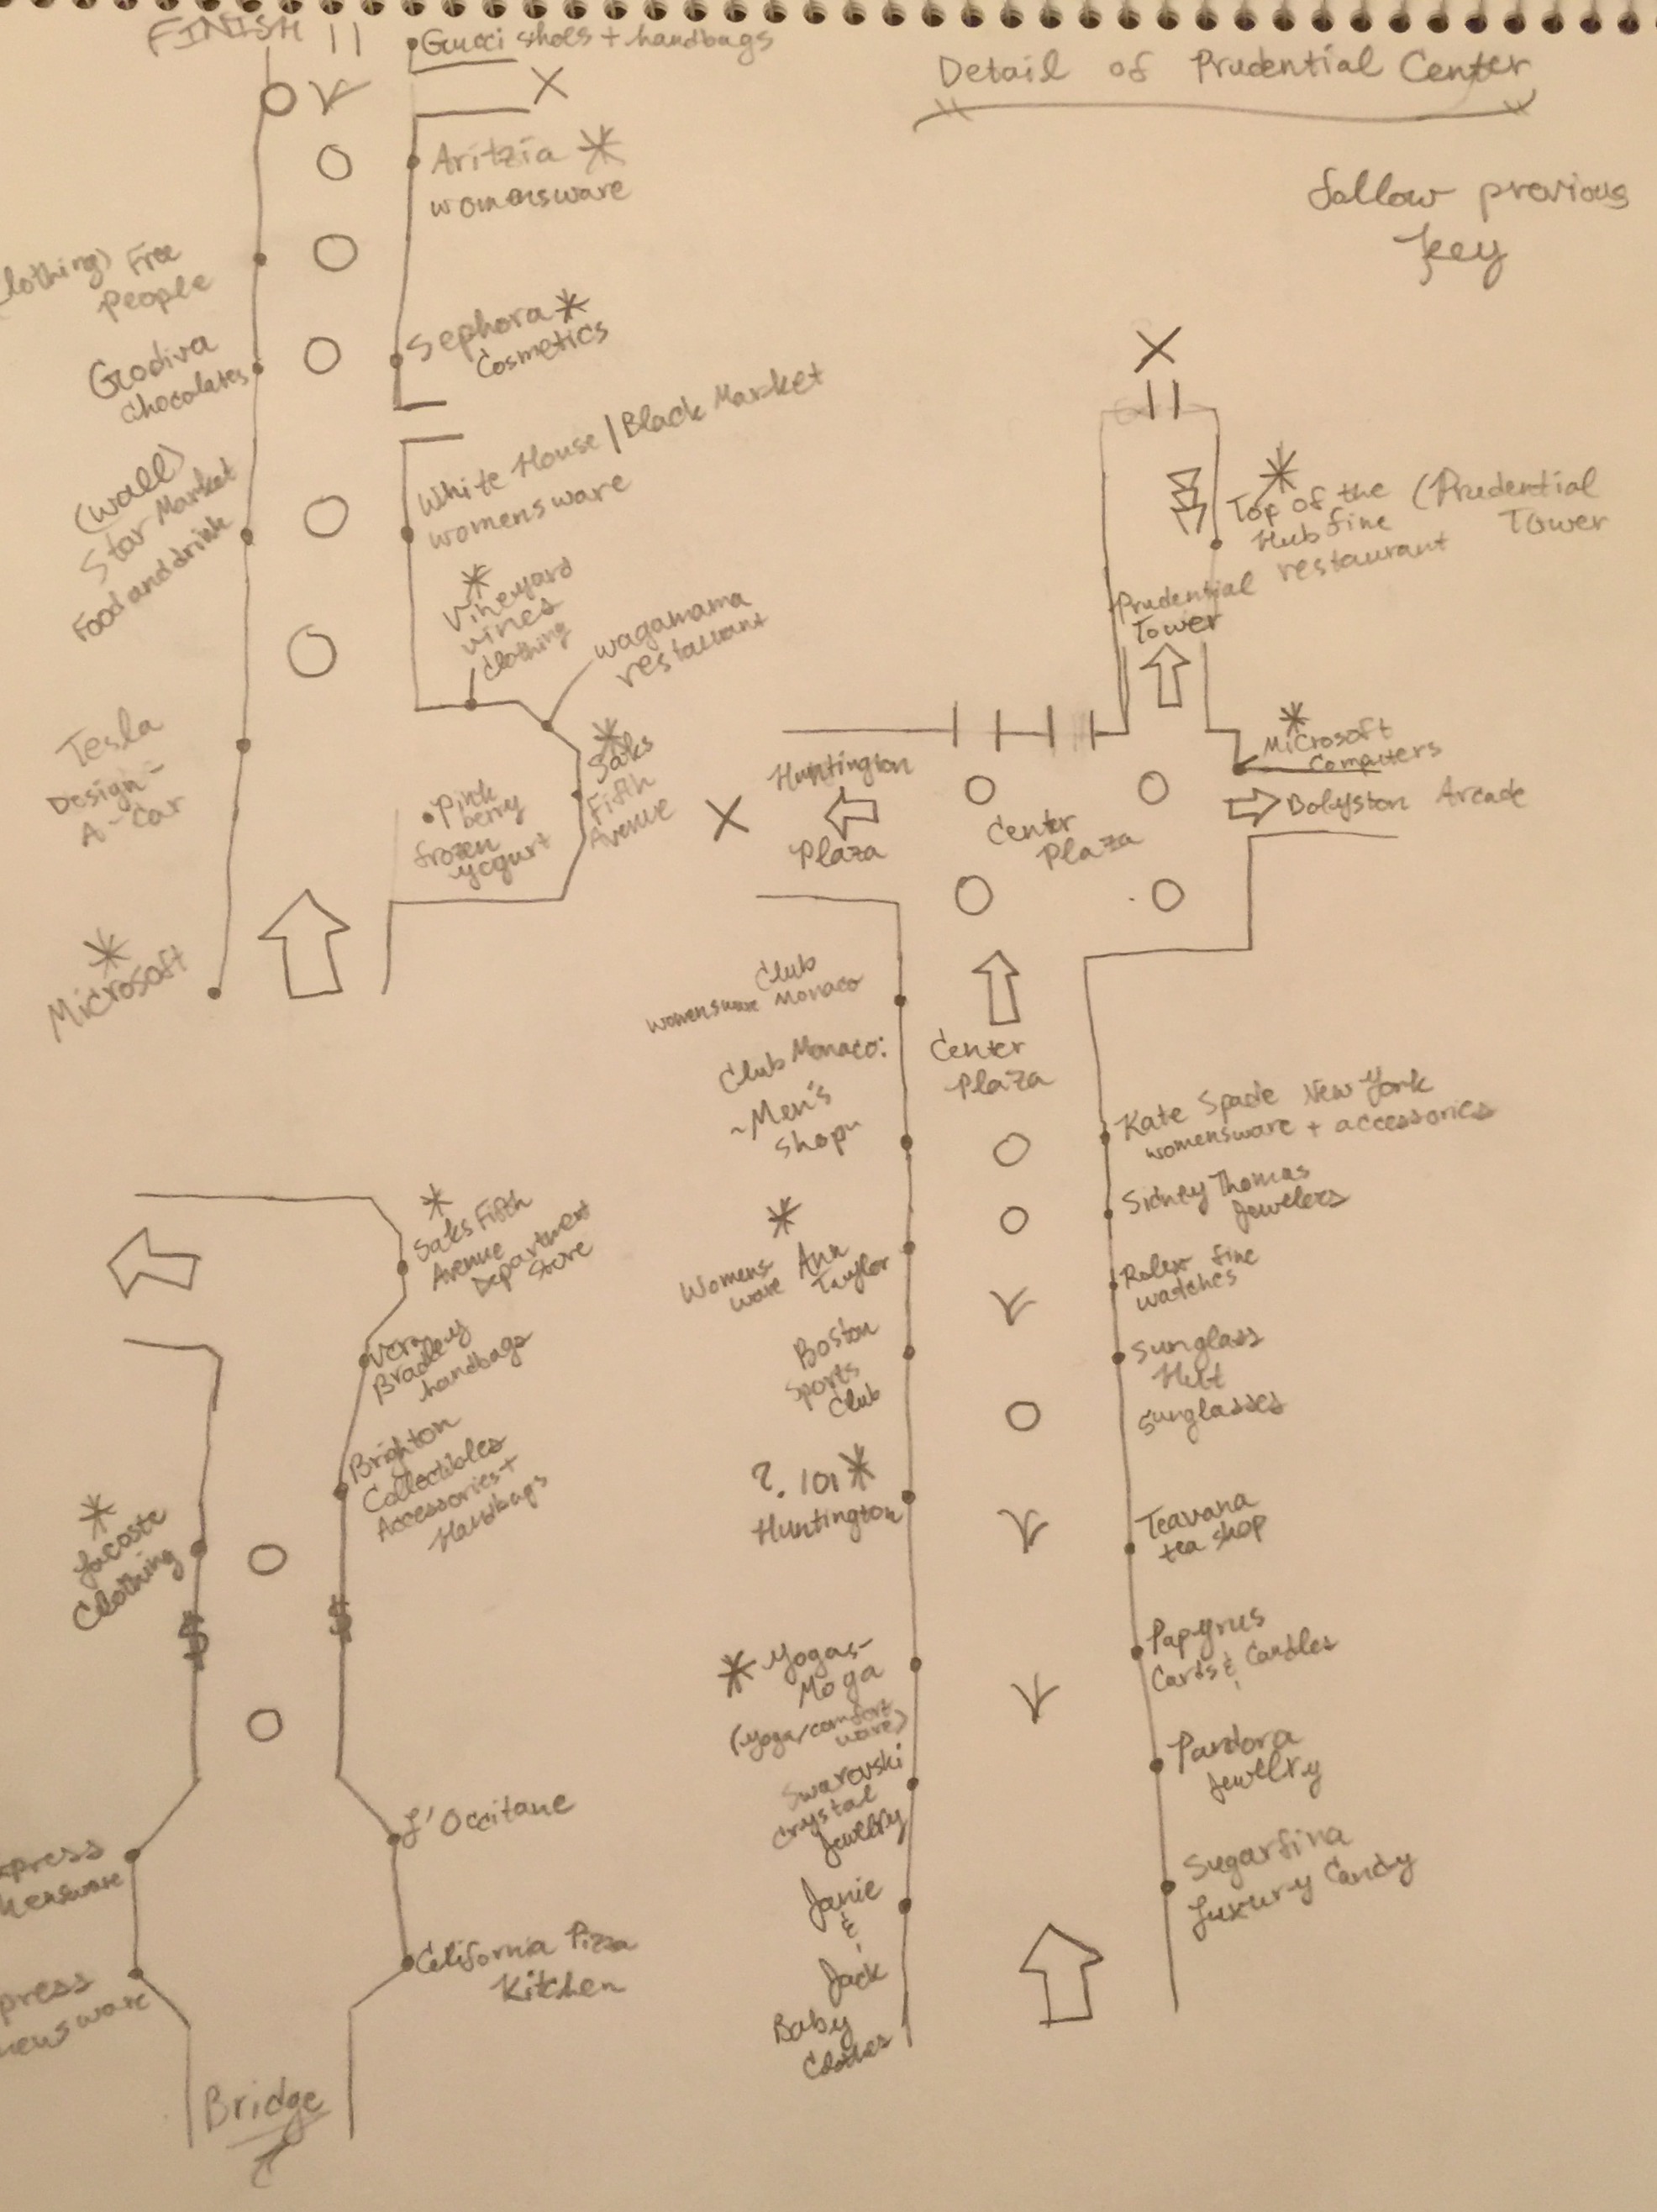 FINISH
Gucci shoes + handbags
Detail of Prudential Center
follow previous
key
Aritzia
womensware
clothing) Free
People
Sephora
Cosmetics
Godiva
Chocolates
White House / Black Market
womensware
(wall)
Star Market
Food and drink
Vineyard
vines
clothing
wagamama
restaurant
Tesla
Design-
A-Car
Pink
berry
frozen
yogurt
Saks
Fifth
Avenue
Microsoft
Top of the
Hub fine
restaurant
(Prudential
Tower
Prudential
Tower
Microsoft
Computers
Huntington
Plaza
Center
Plaza
Bolyston Arcade
Club
womensware Monaco
Club Monaco:
~Men's
shop~
Center
Plaza
Kate Spade New York
womensware + accessories
Sidney Thomas
Jewelers
Womens Ann
ware Taylor
Rolex fine
watches
Boston
Sports
Club
Sunglass
Hut
sunglasses
?. 101
Huntington
Teavana
tea shop
Yogas-
Moga
(yoga/comfort
ware)
Papyrus
Cards & Candles
Swarovski
Crystal
Jewelry
Pandora
Jewelry
Janie
&
Jack
Baby
Clothes
Sugarfina
Luxury Candy
Saks Fifth
Avenue
Department
Store
Vera
Bradley
handbags
Brighton
Collectibles
Accessories +
Handbags
Lacoste
Clothing
$ $
L'Occitane
xpress
California Pizza
Kitchen
press
Bridge